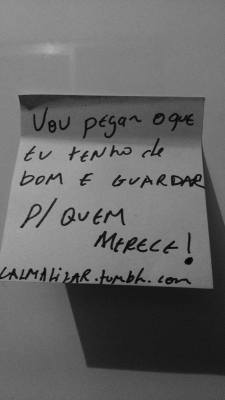 Vou pegar o que
eu tenho de
bom e guardar
p/ quem
merece!
calmalizar.tumblr.com